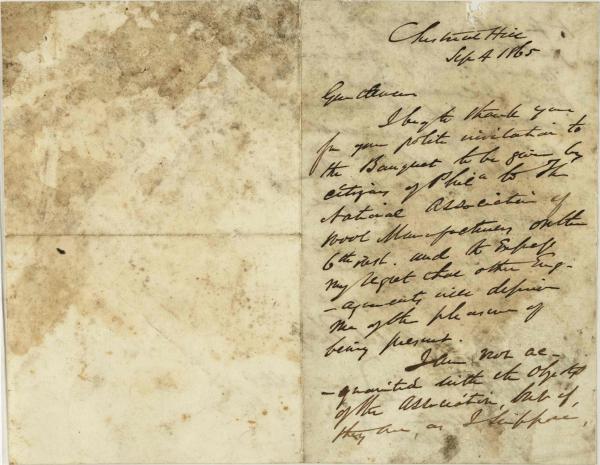 Chestnut Hill
Sep 4 1865
Gentlemen
I beg to thank you
for your polite invitation to
the Banquet to be given by
citizens of Phila to the
National Association of
Wool Manufacturers on the
6th inst. and to express
my regret that other eng-
-agements will deprive
me of the pleasure of
being present.
I am not ac-
-quainted with the objects
of the Association, but if
they are, as I suppose,